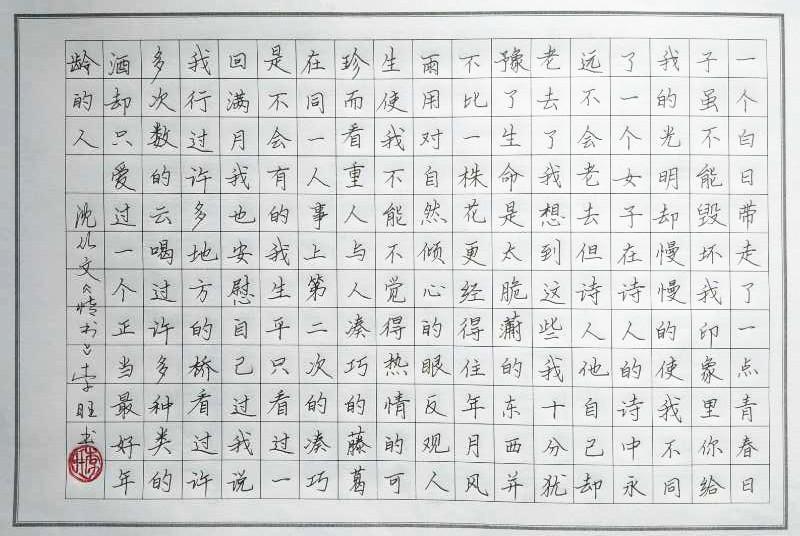 一个白日带走了一点青春日
子虽不能毁坏我印象里你给
我的光明却慢慢的使我不同
了一个女子在诗人的诗中永
远不会老去但诗人他自己却
老去了我想到这些我十分犹
豫了生命是太脆薄的东西并
不比一株花更经得住年月风
雨用对自然倾心的眼反观人
生使我不能不觉得热情的可
珍而看重人与人凑巧的藤葛
在同一人事上第二次的凑巧
是不会有的我生平只看过一
回满月我也安慰自己过我说
我行过许多地方的桥看过许
多次数的云喝过许多种类的
酒却只爱过一个正当最好年
龄的人 沈从文《情书》李旺书